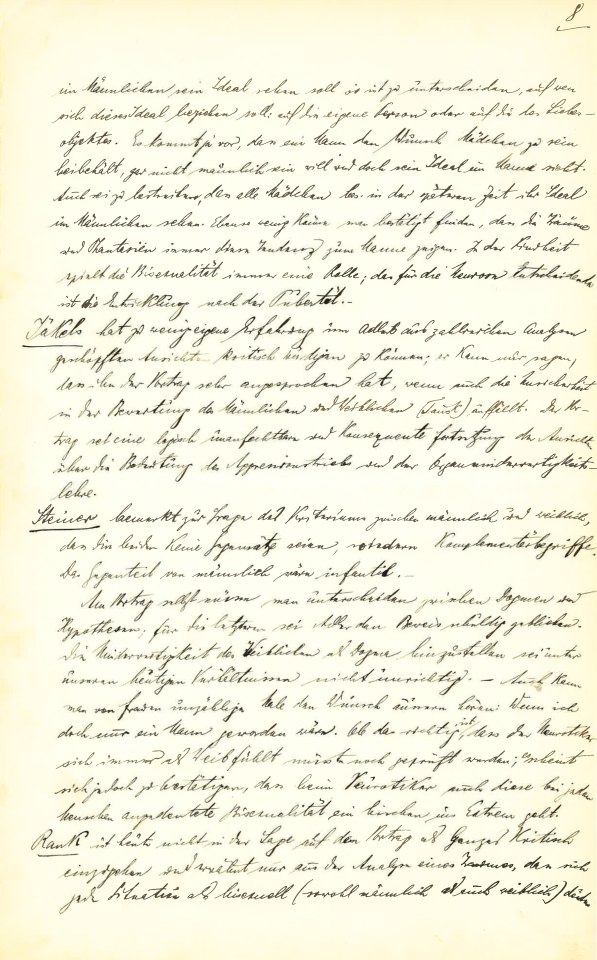 8
im Männlichen sein Ideal sehen soll so ist zu unterscheiden, auf wen
sich dieses Ideal beziehen soll: auf die eigene Person oder auf die des Liebes-
objektes. Es kommt ja vor, dass ein Mann den Wunsch Mädchen zu sein
beibehält, gar nicht männlich sein will und doch sein Ideal im Manne sieht.
Auch sei zu bestreiten, dass alle Mädchen bes. in der späteren Zeit ihr Ideal
im Männlichen sehen. Ebenso wenig könne man bestätigt finden, dass die Träume
und Phantasien immer diese Tendenz zum Manne zeigen. In der Kindheit
spielt die Bisexualität immer eine Rolle; das für die Neurosen Entscheidende
ist die Entwicklung nach der Pubertät.–
Jekels hat zu wenig eigene Erfahrung um Adlers aus zahlreichen Analysen
geschöpften Ansichten kritisch würdigen zu können; er kann nur sagen,
dass ihn der Vortrag sehr angesprochen hat, wenn auch die Unsicherheit
in der Bewertung des Männlichen und Weiblichen (Faust) auffällt. Der Vor-
trag sei eine logisch unanfechtbare und konsequente Fortsetzung der Ansichten
über die Bedeutung des Aggressionstriebs und der Organminderwertigkeits-
lehre.
Steiner bemerkt zur Frage des Kriteriums zwischen männlich und weiblich,
dass die beiden keine Gegensätze seien, sondern Komplementärbegriffe.
Das Gegenteil von männlich wäre infantil.–
Am Vortrag selbst müsse man unterscheiden zwischen Dogmen und
Hypothesen; für die letzteren sei Adler den Beweis schuldig geblieben.
Die Minderwertigkeit des Weiblichen als Dogma hinzustellen sei unter
unseren heutigen Verhältnissen nicht unrichtig. – Auch kann
man von Frauen unzählige Male den Wunsch äussern hören: Wenn ich
doch nur ein Mann geworden wäre. Ob das richtig ist, dass der Neurotiker
sich immer als Weib fühlt müsste noch geprüft werden; es scheint
sich jedoch zu bestätigen, dass beim Neurotiker auch diese bei jedem
Menschen angedeutete Bisexualität ein bischen ins Extrem geht.
Rank ist heute nicht in der Lage auf den Vortrag als Ganzes kritisch
einzugehen und erwähnt nur aus der Analyse eines Traumes, dass sich
jede Situation als bisexuell (sowohl männlich als auch weiblich) deuten